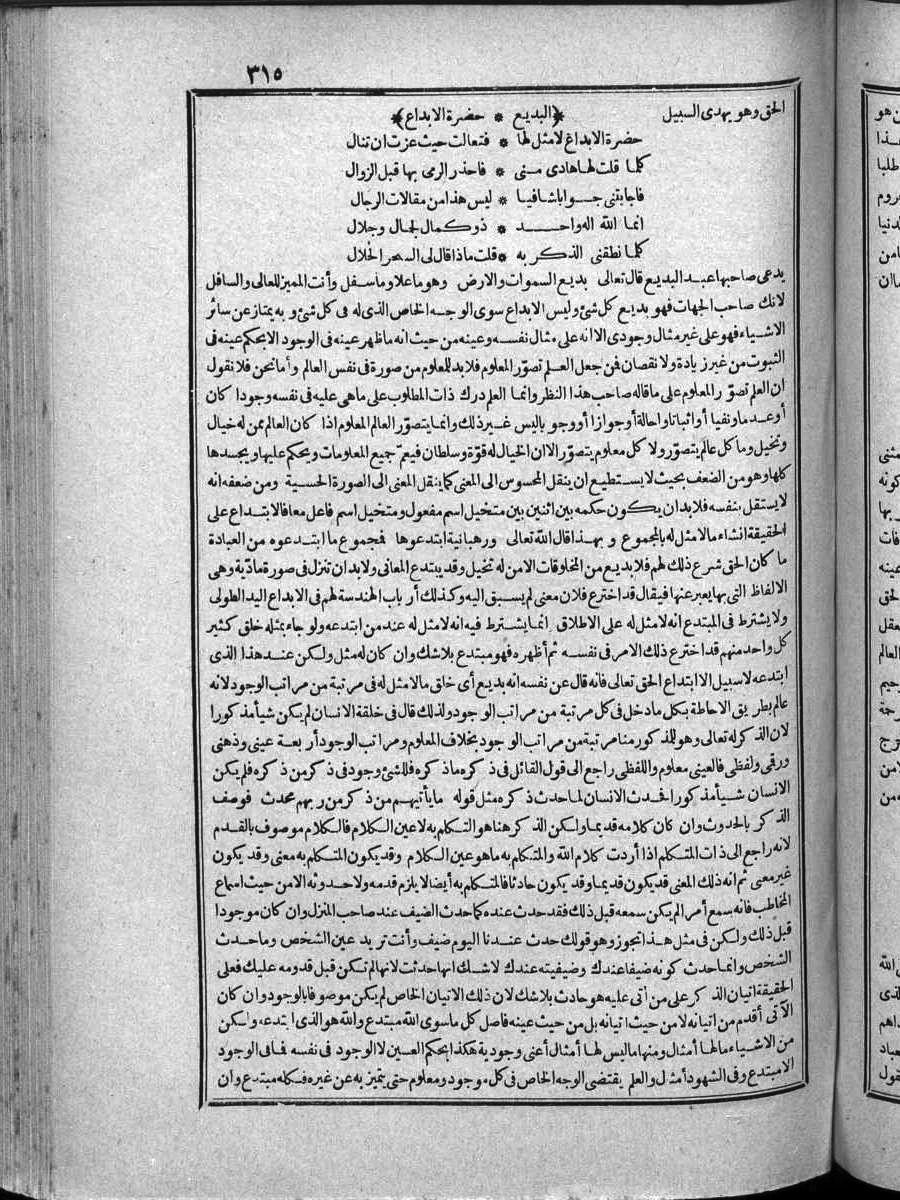 ٣١٥
الحق وهو يهدى السبيل ﴿البديع * حضرة الابداع﴾
حضرة الابداع لا مثل لها * فتعالت حيث عزت ان تنال
كلما قلت لها هادى منى * فاحذر الرمى بها قبل الزوال
فاجابتنى جوابا شافيا * ليس هذا من مقالات الرجال
انما الله اله واحد * ذو كمال لجال وجلال
كلما نطقنى الذكر به * قلت ماذا قال لى السحر الحلال
يدعى صاحبها عبد البديع قال تعالى بديع السموات والارض وهو ما علا وما سفل وأنت المميز للعالى والسافل
لانك صاحب الجهات فهو بديع كل شئ وليس الابداع سوى الوجه الخاص الذى له فى كل شئ و به يمتاز عن سائر
الاشياء فهو على غير مثال وجودى الا انه على مثال نفسه وعينه من حيث انه ما ظهر عينه فى الوجود الا بحكم عينه فى
الثبوت من غير زيادة ولا نقصان فمن جعل العلم تصوّر المعلوم فلا بد للمعلوم من صورة فى نفس العالم وأما نحن فلا نقول
ان العلم تصوّر المعلوم على ما قاله صاحب هذا النظر وانما العلم درك ذات المطلوب على ما هى عليه فى نفسه وجودا كان
أو عدما ونفيا أو اثباتا واحالة أو جوازا أو وجوبا ليس غير ذلك وانما يتصوّر العالم المعلوم اذا كان العالم ممن له خيال
وتخيل وما كل عالم يتصوّر ولا كل معلوم يتصوّر الا ان الخيال له قوّة وسلطان فيعمّ جميع المعلومات ويحكم عليها ويجسدها
كلها وهو من الضعف بحيث لا يستطيع ان ينقل المحسوس الى المعنى كما ينقل المعنى الى الصورة الحسية ومن ضعفه انه
لا يستقل بنفسه فلا بد ان يكون حكمه بين اثنين بين متخيل اسم مفعول ومتخيل اسم فاعل معا فالابتداع على
الحقيقة انشاء ما لا مثل له بالمجموع و بهذا قال الله تعالى ورهبانية ابتدعوها فمجموع ما ابتدعوه من العبادة
ما كان الحق شرع ذلك لهم فلا بديع من المخلوقات الا من له تخيل وقد يبتدع المعانى ولا بد ان تنزل فى صورة مادّية وهى
الالفاظ التى بها يعبر عنها فيقال قد اخترع فلان معنى لم يسبق اليه وكذلك أرباب الهندسة لهم فى الابداع اليد الطولى
ولا يشترط فى المبتدع انه لا مثل له على الاطلاق انما يشترط فيه انه لا مثل له عند من ابتدعه ولو جاء بمثله خلق كثير
كل واحد منهم قد اخترع ذلك الامر فى نفسه ثم أظهره فهو مبتدع بلا شك وان كان له مثل ولكن عند هذا الذى
ابتدعه لا سبيل الا ابتداع الحق تعالى فانه قال عن نفسه انه بديع أى خلق ما لا مثل له فى مرتبة من مراتب الوجود لانه
عالم بطريق الاحاطة بكل ما دخل فى كل مرتبة من مراتب الوجود ولذلك قال فى خلقة الانسان لم يكن شيأ مذكورا
لان الذكر له تعالى وهو للمذكور منا مرتبة من مراتب الوجود بخلاف المعلوم ومراتب الوجود أربعة عينى وذهنى
ورقى ولفظى فالعينى معلوم واللفظى راجع الى قول القائل فى ذكره ما ذكره فللشئ وجود فى ذكر من ذكره فلم يكن
الانسان شيأ مذكورا فحدث الانسان لما حدث ذكره مثل قوله ما يأتيهم من ذكر من ربهم محدث فوصف
الذكر بالحدوث وان كان كلامه قديما ولكن الذكر هنا هو التكلم به لا عين الكلام فالكلام موصوف بالقدم
لانه راجع الى ذات المتكلم اذا أردت كلام الله والمتكلم به ما هو عين الكلام وقد يكون المتكلم به معنى وقد يكون
غير معنى ثم انه ذلك المعنى قد يكون قديما وقد يكون حادثا فالمتكلم به أيضا لا يلزم قدمه ولا حدوثه الا من حيث اسماع
المخاطب فانه سمع أمر الم يكن سمعه قبل ذلك فقد حدث عنده كما حدث الضيف عند صاحب المنزل وان كان موجودا
قبل ذلك ولكن فى مثل هذا تجوز وهو قولك حدث عندنا اليوم ضيف وأنت تريد عين الشخص وما حدث
الشخص وانما حدث كونه ضيفا عندك وضيفيته عندك لا شك انها حدثت لانها لم تكن قبل قدومه عليك فعلى
الحقيقة اتيان الذكر على من أتى عليه هو حادث بلا شك لان ذلك الاتيان الخاص لم يكن موصوفا بالوجود وان كان
الآتى أقدم من اتيانه لا من حيث اتيانه بل من حيث عينه فاصل كل ما سوى الله مبتدع والله هو الذى ابتدعه ولكن
من الاشياء ما لها أمثال ومنها ما ليس لها أمثال أعنى وجودية هكذا بحكم العين لا الوجود فى نفسه فما فى الوجود
الا مبتدع وفى الشهود أمثال والعلم يقتضى الوجه الخاص فى كل موجود ومعلوم حتى يتميز به عن غيره فكله مبتدع وان